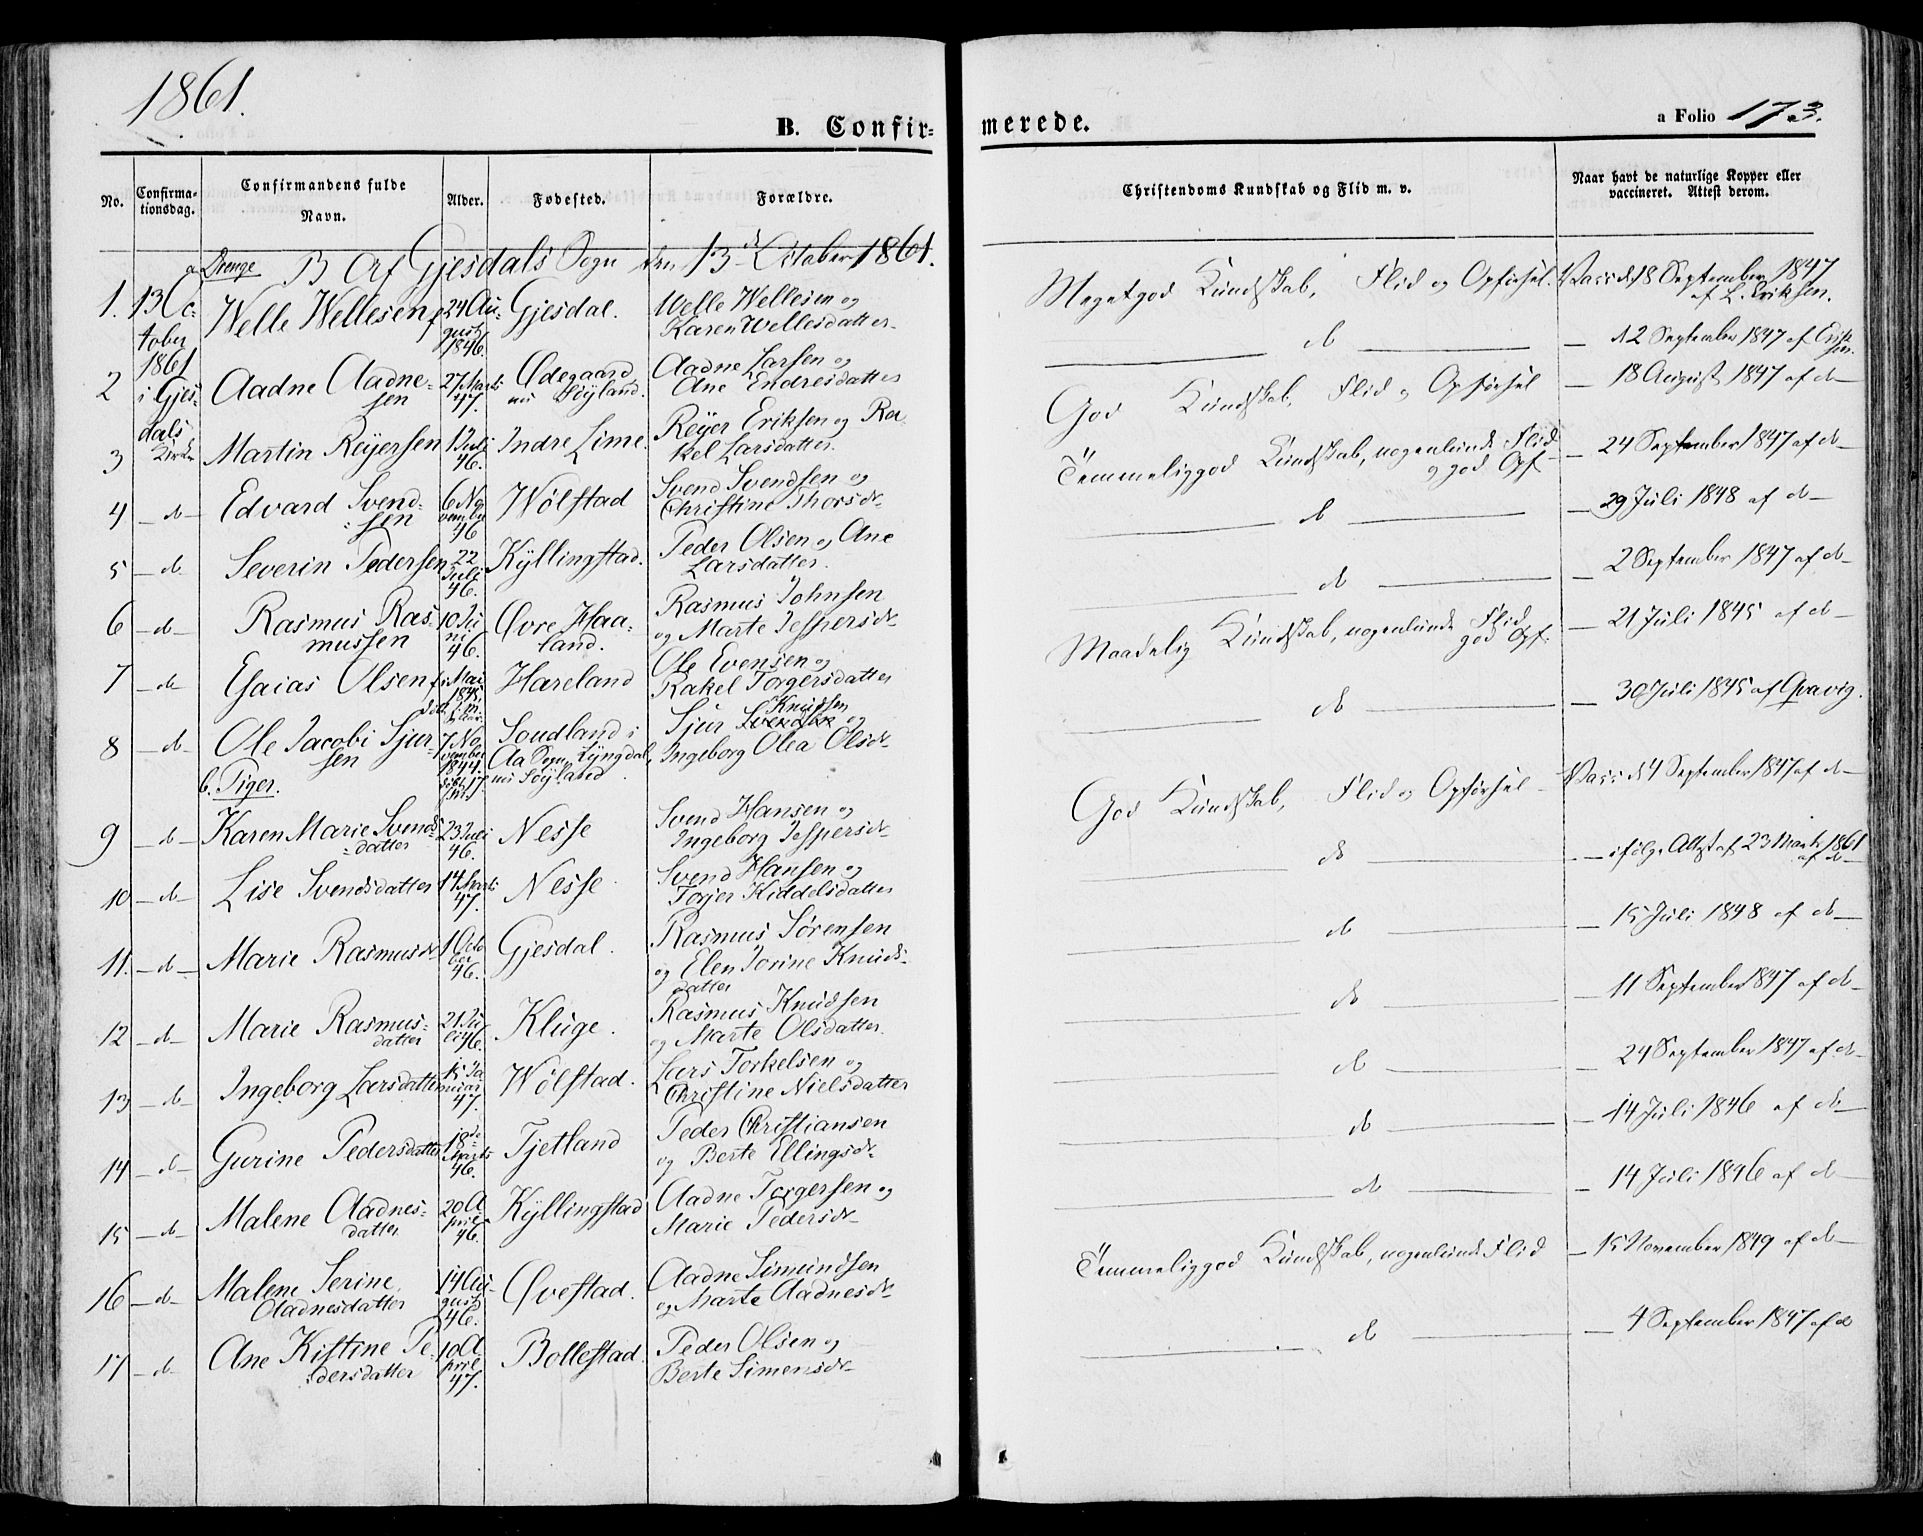 1861.
B. Confir-
merede.
a Folio 173.
No.
Confirma-
tionsdag.
Confirmandens fulde
Navn.
Alder.
Fødested.
Forældre.
Christendoms Kundskab og Flid m. v.
Naar havt de naturlige Kopper eller
vaccineret. Attest derom.
a Drenge B Af Gjesdals Sogn den 13de October 1861.
1. 13 Oc-
tober
1861
i Gjes-
dals
Kirke
Welle Wellesen
24 Au-
gust
1846.
Gjesdal.
Welle Wellesen og
Karen Wellesdatter
Megetgod Kundskab, Flid og Opførsel.
Vacc. d. 18 September 1847
af L. Eriksen.
2
Aadne Aadne-
sen
27 Marts
47.
Ødegaard
nu Søyland.
Aadne Larsen og
Ane Endresdatter
do
12 September 1847 af Erik-
sen.
3
Martin Reyersen
1 Juli
46.
Indre Lime.
Reyer Eriksen og Ra-
kel Larsdatter.
God Kundskab, Flid og Opførsel
18 August 1847 af do
4 do
Edvard Svend-
sen
6 No-
vember
46
Wølstad
Svend Svendsen og
Christine Thorsdr
Temmeliggod Kundskab, nogenlunde Flid
og god Opf.
24 September 1847 af do
5 do
Severin Pedersen
22
Juli
46.
Kyllingstad.
Peder Olsen og Ane
Larsdatter.
do
29 Juli 1848 af do
6 do
Rasmus Ras-
mussen
10 Ju-
ni
46.
Øvre Haa-
land.
Rasmus Johnsen
og Marte Jespersdr
do
2 September 1847 af do
7 do
Esaias Olsen
Mai
1845,
Hareland
Ole Evensen og
Rakel Torgersdatter
Maadelig Kundskab, nogenlunde Flid
god Opf.
21 Juli 1845 af do
8 do
Ole Jacobi Sjur-
sen
7 No-
vember
1844.
Soudland i
Aa Sogn, Lyngdal,
nu Søyland
Knudsen
Sjur Svendsen og
Ingeborg Olea Olsdr
do
30 Juli 1845 af Gravig.
b. Piger.
9 do
Karen Marie Svends-
datter
23 Juli
46.
Nesse
Svend Hansen og
Ingeborg Jespersdr
God Kundskab, Flid og Opførsel
Vacc. d. 4 September 1847 af do
10 do
Lise Svendsdatter
14 Marts
47.
Nesse
Svend Hansen og
Torjer Kiddelsdatter
do
ifølge Attest af 23 Marts 1861
af do
11. do
Marie Rasmusdr
1 Octo-
ber
46.
Gjesdal.
Rasmus Sørensen
og Elen Jorine Knuds-
datter
do
15 Juli 1848 af do
12 do
Marie Rasmus-
datter
21 Ju-
li 46.
Kluge.
Rasmus Knudsen
og Marte Olsdatter.
do
11 September 1847 af do
13 do
Ingeborg Larsdatter
15 Ja-
nuar
47.
Wølstad.
Lars Torkelsen og
Christine Nielsdatter
do
24 September 1847 af do
14 do
Gurine Pedersdatter
18de
Marts
46.
Tjetland
Peder Christiansen
og Berte Ellingsdr
do
14 Juli 1846 af do
15 do
Malene Aadnes-
datter
20 A-
pril
46.
Kyllingstad
Aadne Torgersen og
Marie Pedersdr
do
14 Juli 1846 af do
16 do
Malene Serine
Aadnesdatter
14 Au-
gust
46.
Øvestad.
Aadne Simundsen
og Marte Aadnesdr
Temmeliggod Kundskab, nogenlunde Flid
15 November 1849 af do
17 do
Ane Kistine Pe-
dersdatter
10 A-
pril
47.
Bollestad.
Peder Olsen og
Berte Simensdr
do
4 September 1847 af do